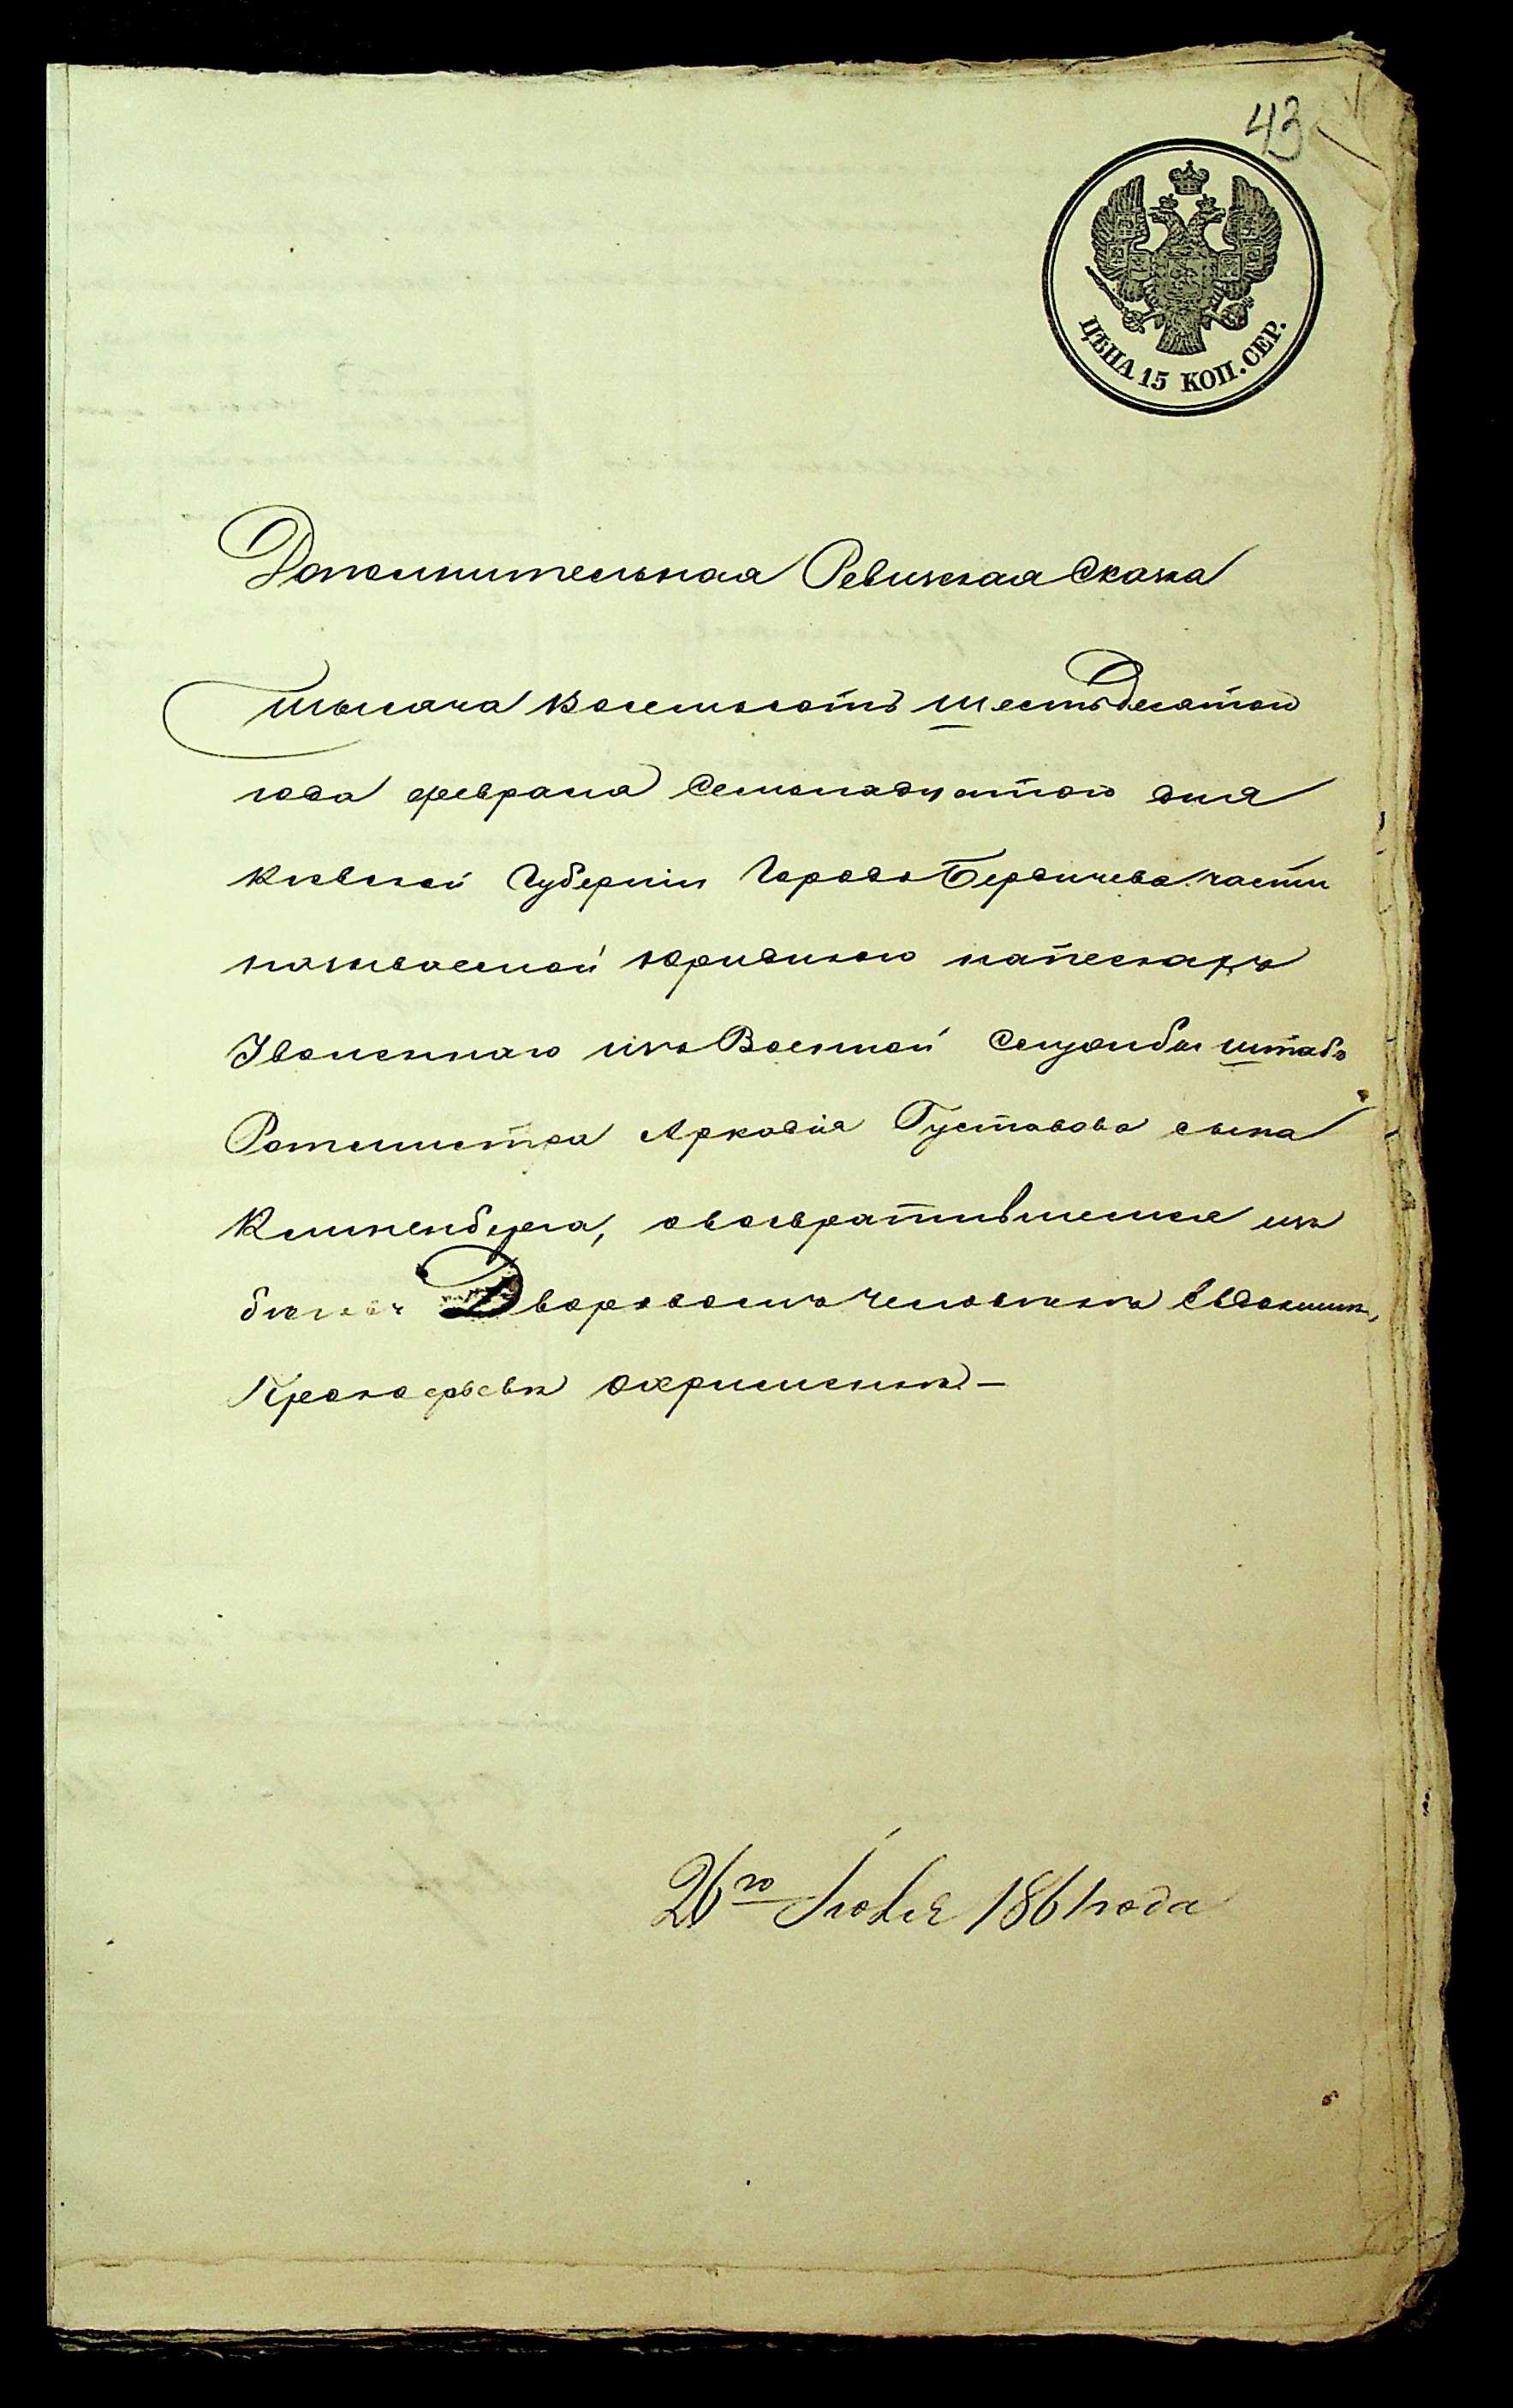 43
ЦѢНА 15 КОП. СЕР.
Дополнительная Ревизская Сказка
тысяча восемьсотъ шестьдесятого
года февраля семьнадцатого дня
Киевской Губерніи Города Бердичева части
называемой юридикою напескахъ
Уволеннаго изъ Военной Службы штабъ
Ротмистра Аркадія Густавова сына
овозвратившемся изъ
бѣговъ Дворовомъ человѣкѣ Евдокимѣ
Прокофьевѣ Охрименкѣ –
26го Іюля 1861 года